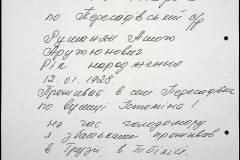 по Пересадівській с/р
Руманян Ашот
Арутюнович
Рік народження
12.01.1928
Проживає в селі Пересадівка
по вулиці 1
На час голодомору
я з батьками проживав
в Грузії в Тбілісі.